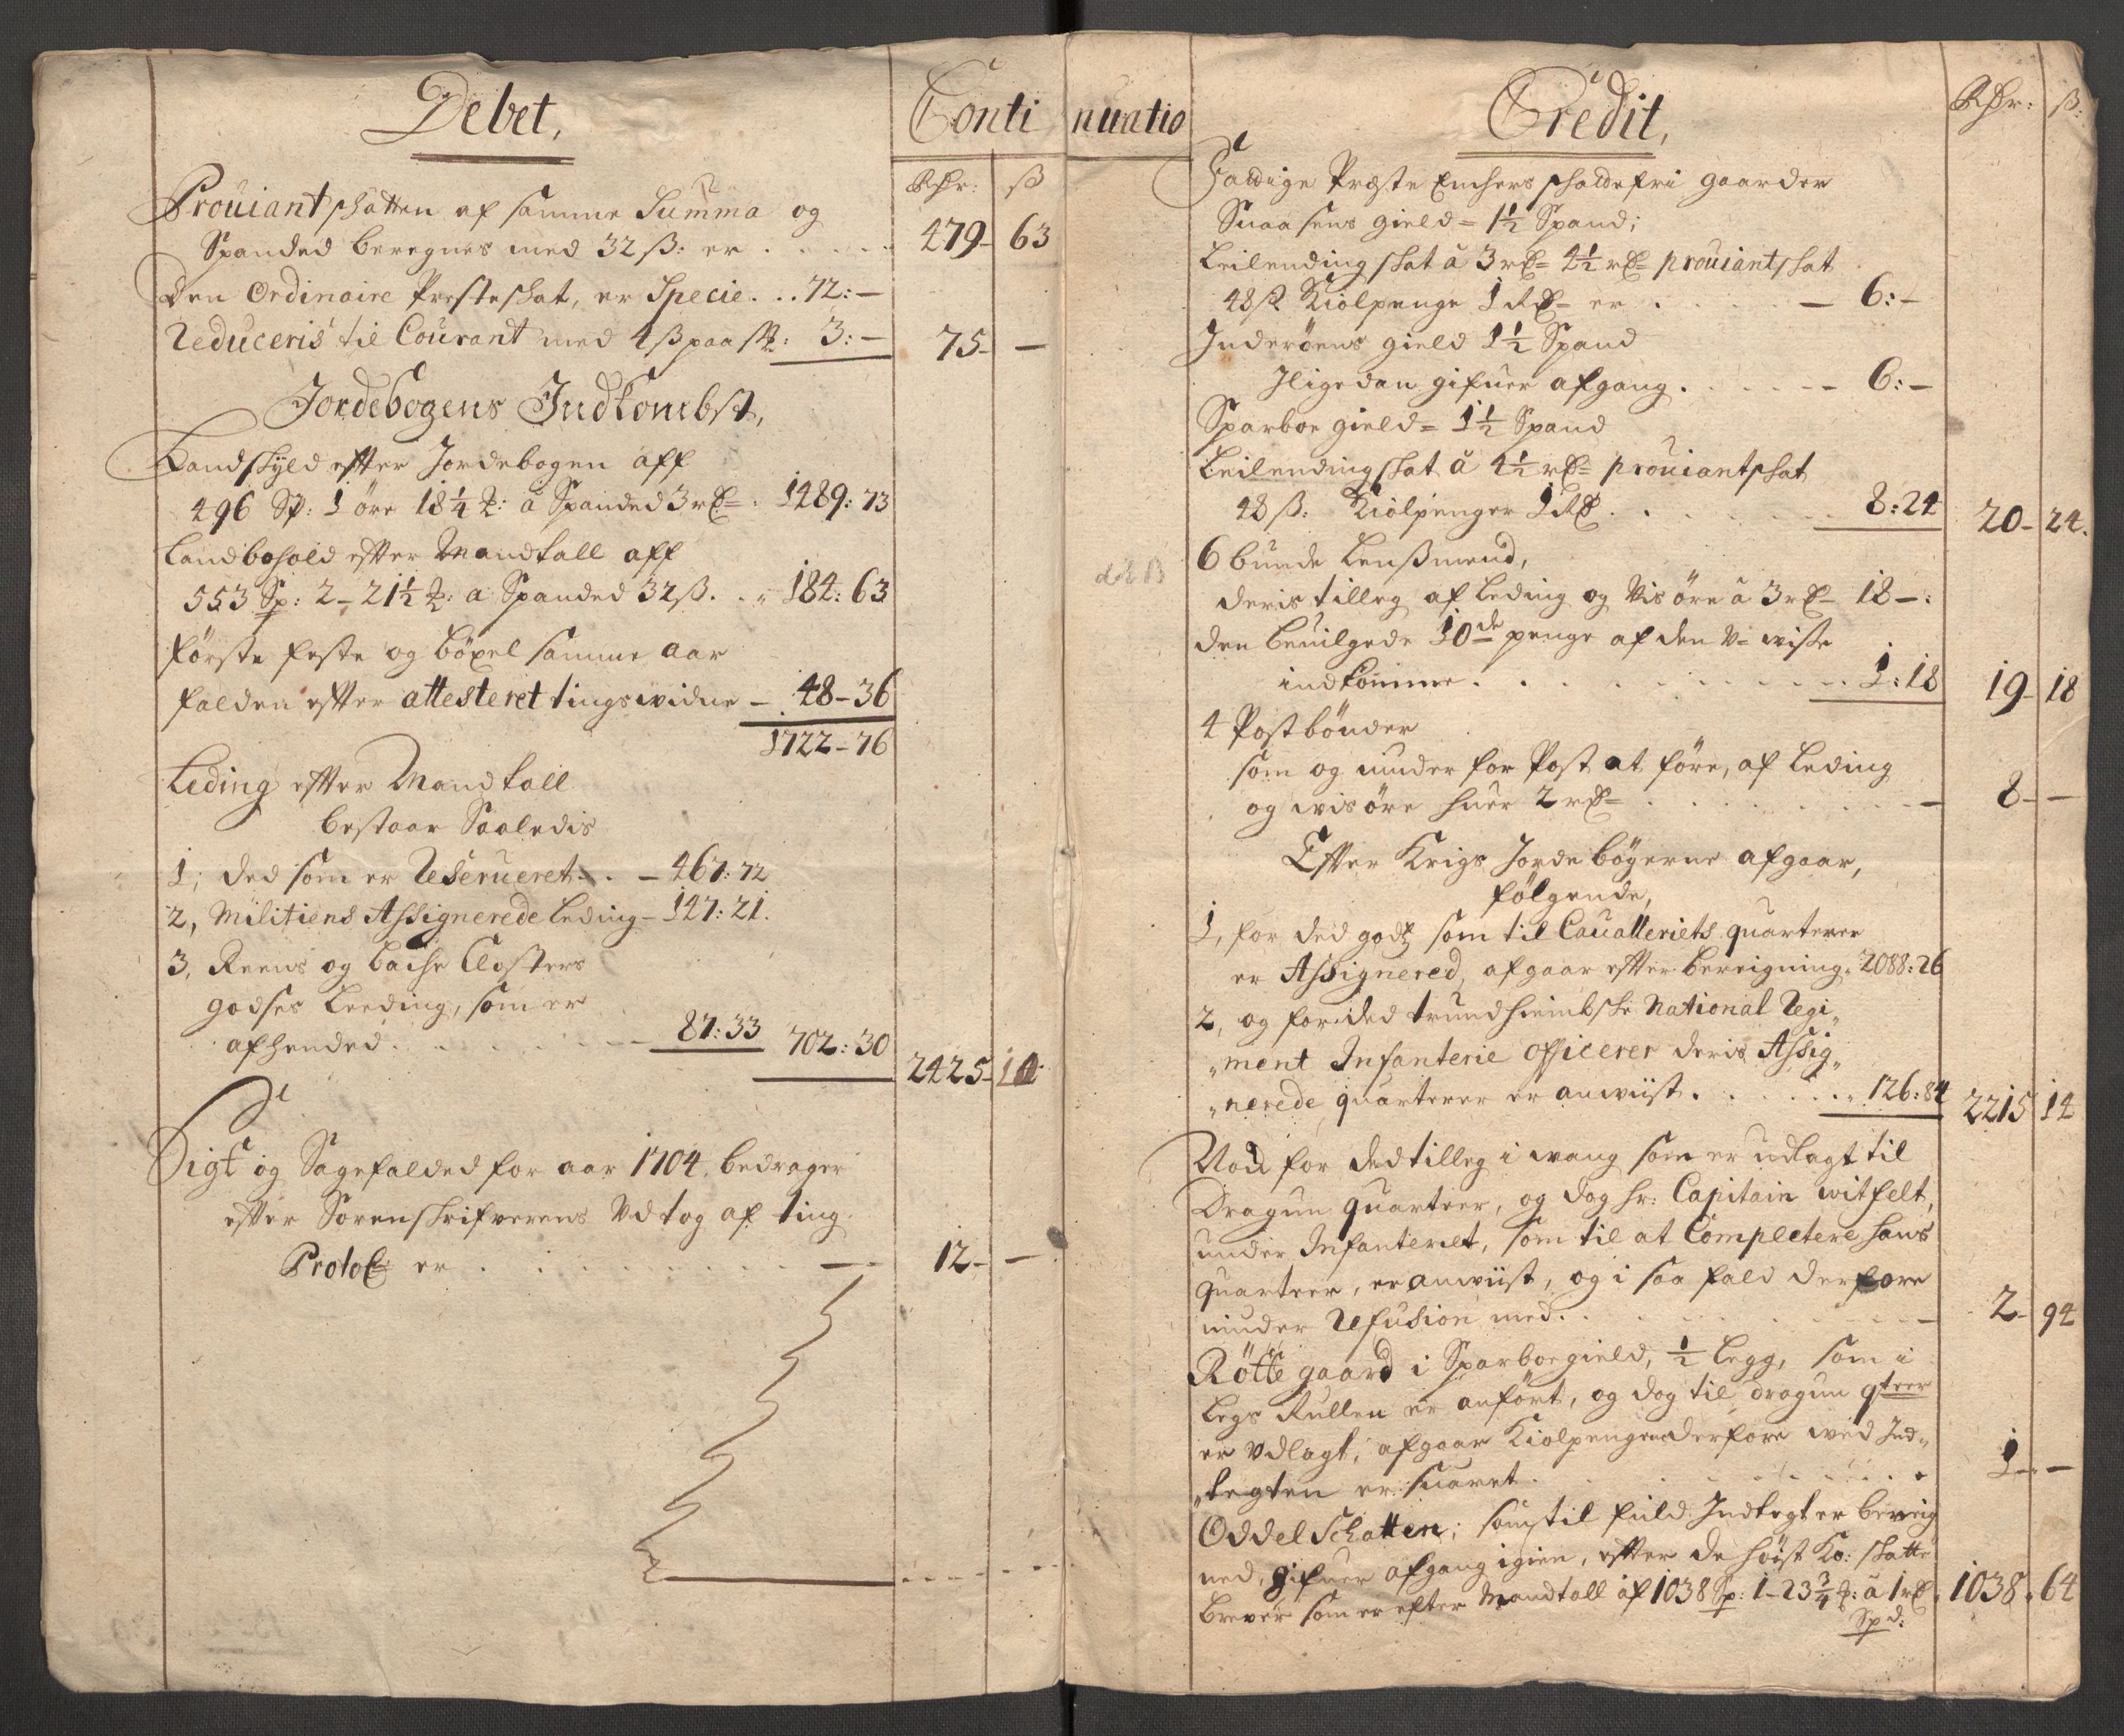 Debet,
Conti
Rdr: ß
Prouiant skatten af samme Summa og
Spanded beregnes med 32 ß: er . . . . . 479- 63
Den Ordinaire Presteskat, er Specie. . . 72:-
Reduceris til Courant med 4 ß paa : 3:- 75- -
Jordebogens Indkombst,
Landskyld efter Jordebogen aff
496 Sp: 1 öre 18¼ : â Spanded 3 rd = . 1489: 73
Landbohold efter Mandtall aff
553 Sp: 2 - 21½ : a Spanded 32 ß. . „ 184: 63
förste feste og böxel samme aar
falden efter attesteret tingswidne - 48-36
1722-76
Leding efter Mandtall
bestaar Saaledis
1; ded som er Reserueret. . - 467: 72
2, Militiens Assignerede Leding - 147: 21.
3, Reens og Closters
godses Leeding, som er
afhended . . . . . . 87: 33 702: 30
2425- 10
Sigt og Sagefalded for aar 1704. bedrager
efter Sorenskrifverens Vdtog af ting
Protol: er . . . . . . . . 12- -
nuatio
Credit,
Rdr: ß:
Faadige Preste Enchers skaldefri gaarder
Snaasens gield = 1½ Spand;
Leilending skat â 3 rd = 4½ rd = prouiantskat
48 ß Kiolpenge 1 Rd = er . . . . - 6:-
Inderöens gield 1½ Spand
Iligedan gifuer afgang . . . . . - 6:-
Sparboe gield = 1½ Spand
Leilending skat â 4½ rd = prouiantskat
48 ß: Kiolpenger 1 Rd . . . . . 8: 24 20- 24.
6 bunde Lensmend,
deris tilleg af Leding og Visöre â 3 rd - 18 - :
den beuilgede 10de penge af den V= wisse
indkomme . . . . . . . . . 1: 18 19- 18
4 Postbönder
som og niuder for Post at före, af Leding
og wisöre huer 2 rd = . . . . . . - 8- -
Efter Krigs Jordebögerne afgaar,
fölgende,
1, for ded godz som til Caualleriets quarterer
er Assignered, afgaar efter bereigning. 2088: 26
2, og for ded trundhiembske National Regi„
„ment Infanterie officerer deris Assig„
„nerede quarterer er anwiist . . . . . 126: 84 2215 14
Nod for ded tilleg i wang som er udlagt til
Dragun quarteer, og dog hr: Capitain witfelt,
under Infanteriet, som til at Completere hans
quarteer, er anwiist, og i saa fald derfore
niuder Refusion med . . . . . . . - 2- 94
Rötte gaard i Sparboegield, ½ legg, som i
Legs Rullen er anfört, og dog til dragun qteer
er Vdlagt, afgaar Kiolpengen derfore wed Ind„
„tegten er suaret . . . . . . . . 1- -
Oddel Schatten; som til fuld Indtegt er bereig
ned, gifuer afgang igien, efter de höist Ko: skatte
brever som er efter Mandtall af 1038 Sp: 1-23¾ : â 1 rd . 1038. 64
Spd: